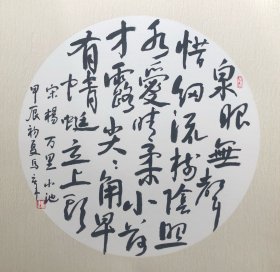 泉眼無聲
惜細流樹陰照
水愛晴柔小荷
才露尖尖角早
有蜻蜓立上頭
宋楊万里小池
甲辰初夏馬